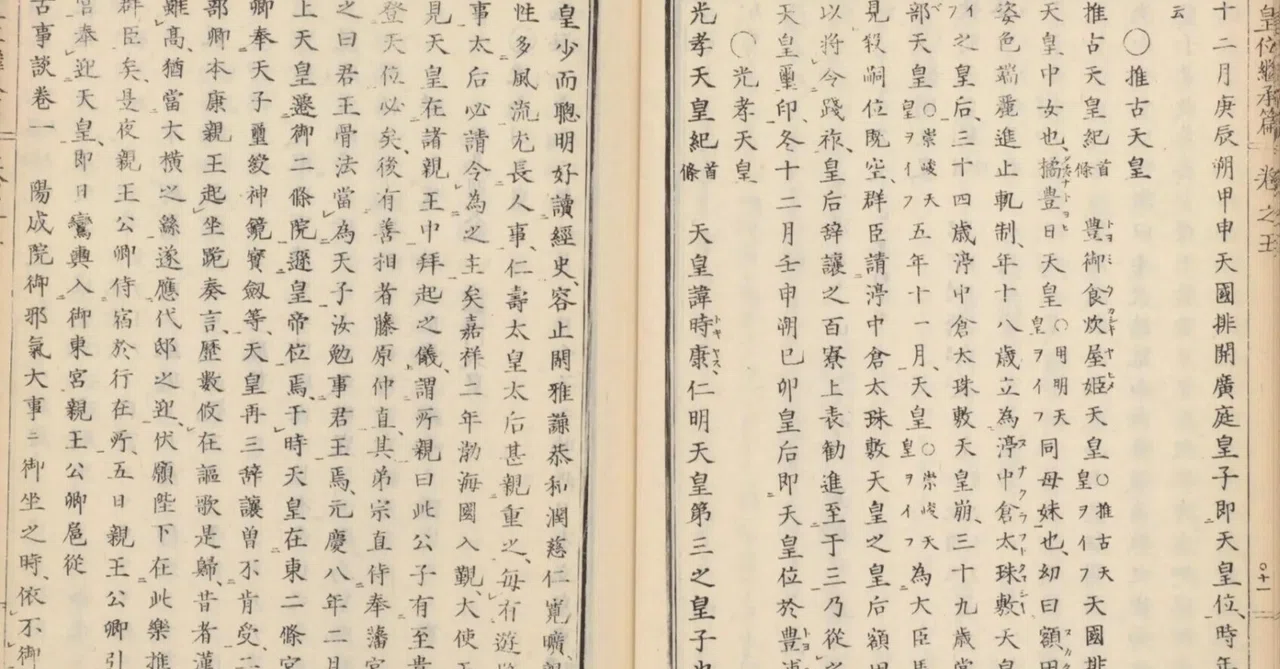 皇位繼承篇
十二月庚辰朔甲申天國排開廣庭皇子即天皇位、時年
云
〇推古天皇
推古天皇紀首條 豊御食炊屋姫天皇〇推古天皇ヲイフ天國排
天皇中女也、橘豊日天皇〇用明天皇ヲイフ同母妹也、幼曰額田
姿色端麗進止軌制、年十八歳立為渟中倉太珠敷天皇
之皇后、三十四歳渟中倉太珠敷天皇崩、三十九歳當
部天皇〇崇峻天皇ヲイフ五年十一月、天皇〇崇峻天皇ヲイフ為大臣馬
見殺嗣位既空、群臣請渟中倉太珠敷天皇之皇后額田
以将令踐祚、皇后辞讓之、百寮上表勸進至于三乃從之
天皇璽印、冬十二月壬申朔己卯皇后即天皇位於豊浦
〇光孝天皇
光孝天皇紀首條 天皇諱時康仁明天皇第三之皇子也
皇少而聰明好讀經史、容止閑雅謙恭和潤慈仁寛曠、親
性多風流尤長人事、仁壽太皇太后甚親重之、毎有遊
事太后必請令為之主矣嘉祥二年渤海國入覲、大使王
見天皇在諸親王中拜起之儀、謂所親曰此公子有至貴
登天位必矣、後有善相者藤原仲直其弟宗直侍奉藩宮
之曰君王骨法當為天子汝勉事君王焉、元慶八年二月
上天皇遷御二條院遜皇帝位焉、于時天皇在東二條宮
卿奉天子璽綬神鏡寶劔等、天皇再三辞讓曽不肯受、二
部卿本康親王起坐跪奏言、歴數攸在謳歌是歸、昔者漢
雖髙猶當大横之繇遂應代邸之迎、伏願陛下在此樂推
群臣矣、是夜親王公卿侍宿於行在所、五日親王公卿引
宮奉迎天皇、即日鸞輿入御東宮親王公卿扈從
古事談卷一 陽成院御邪氣大事ニ御坐之時、依不御